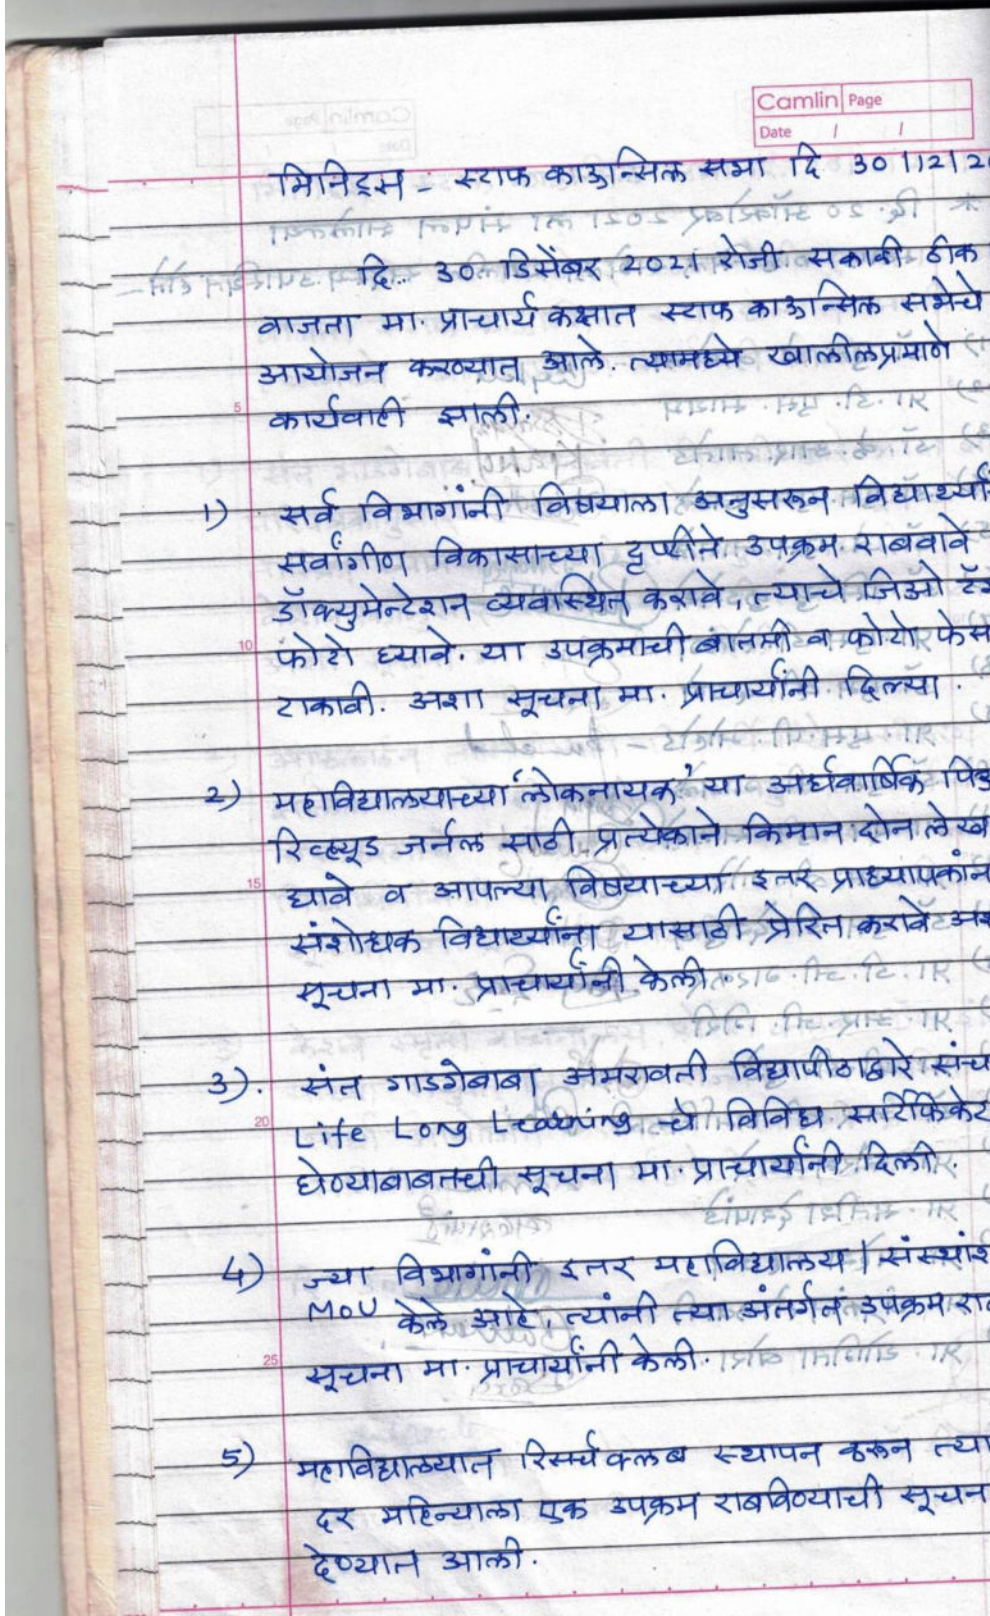 Camlin Page
Date / /
मिनिट्स - स्टाफ काऊन्सिल सभा दि 30।12।2
दि. 30 डिसेंबर 2021 रोजी सकाळी ठीक
वाजता मा. प्राचार्य कक्षात स्टाफ काऊन्सिल सभेचे
आयोजन करण्यात आले. त्यामध्ये खालीलप्रमाणे
5
कार्यवाही झाली.
1) सर्व विभागांनी विषयाला अनुसरून विद्यार्थ्यां
सर्वांगीण विकासाच्या दृष्टीने उपक्रम राबवावे
डॉक्युमेन्टेशन व्यवस्थित करावे, त्याचे जिओ टॅ
10 फोटो घ्यावे. या उपक्रमाची बातमी व फोटो फेस
टाकावी. अशा सूचना मा. प्राचार्यांनी दिल्या.
2) महाविद्यालयाच्या 'लोकनायक' या अर्धवार्षिक पिअ
रिव्ह्यूड जर्नल साठी प्रत्येकाने किमान दोन लेख
15 द्यावे व आपल्या विषयाच्या इतर प्राध्यापकांन
संशोधक विद्यार्थ्यांना यासाठी प्रेरित करावे अश
सूचना मा. प्राचार्यांनी केली.
3). संत गाडगेबाबा अमरावती विद्यापीठाद्वारे संच
20 Life Long Learning चे विविध सर्टिफिकेट
घेण्याबाबतची सूचना मा. प्राचार्यांनी दिली.
4) ज्या विभागांनी इतर महाविद्यालय / संस्थांश
MOU केले आहे, त्यांनी त्या अंतर्गत उपक्रम रा
25 सूचना मा. प्राचार्यांनी केली.
5) महाविद्यालयात रिसर्च क्लब स्थापन करून त्या
दर महिन्याला एक उपक्रम राबविण्याची सूचन
देण्यात आली.